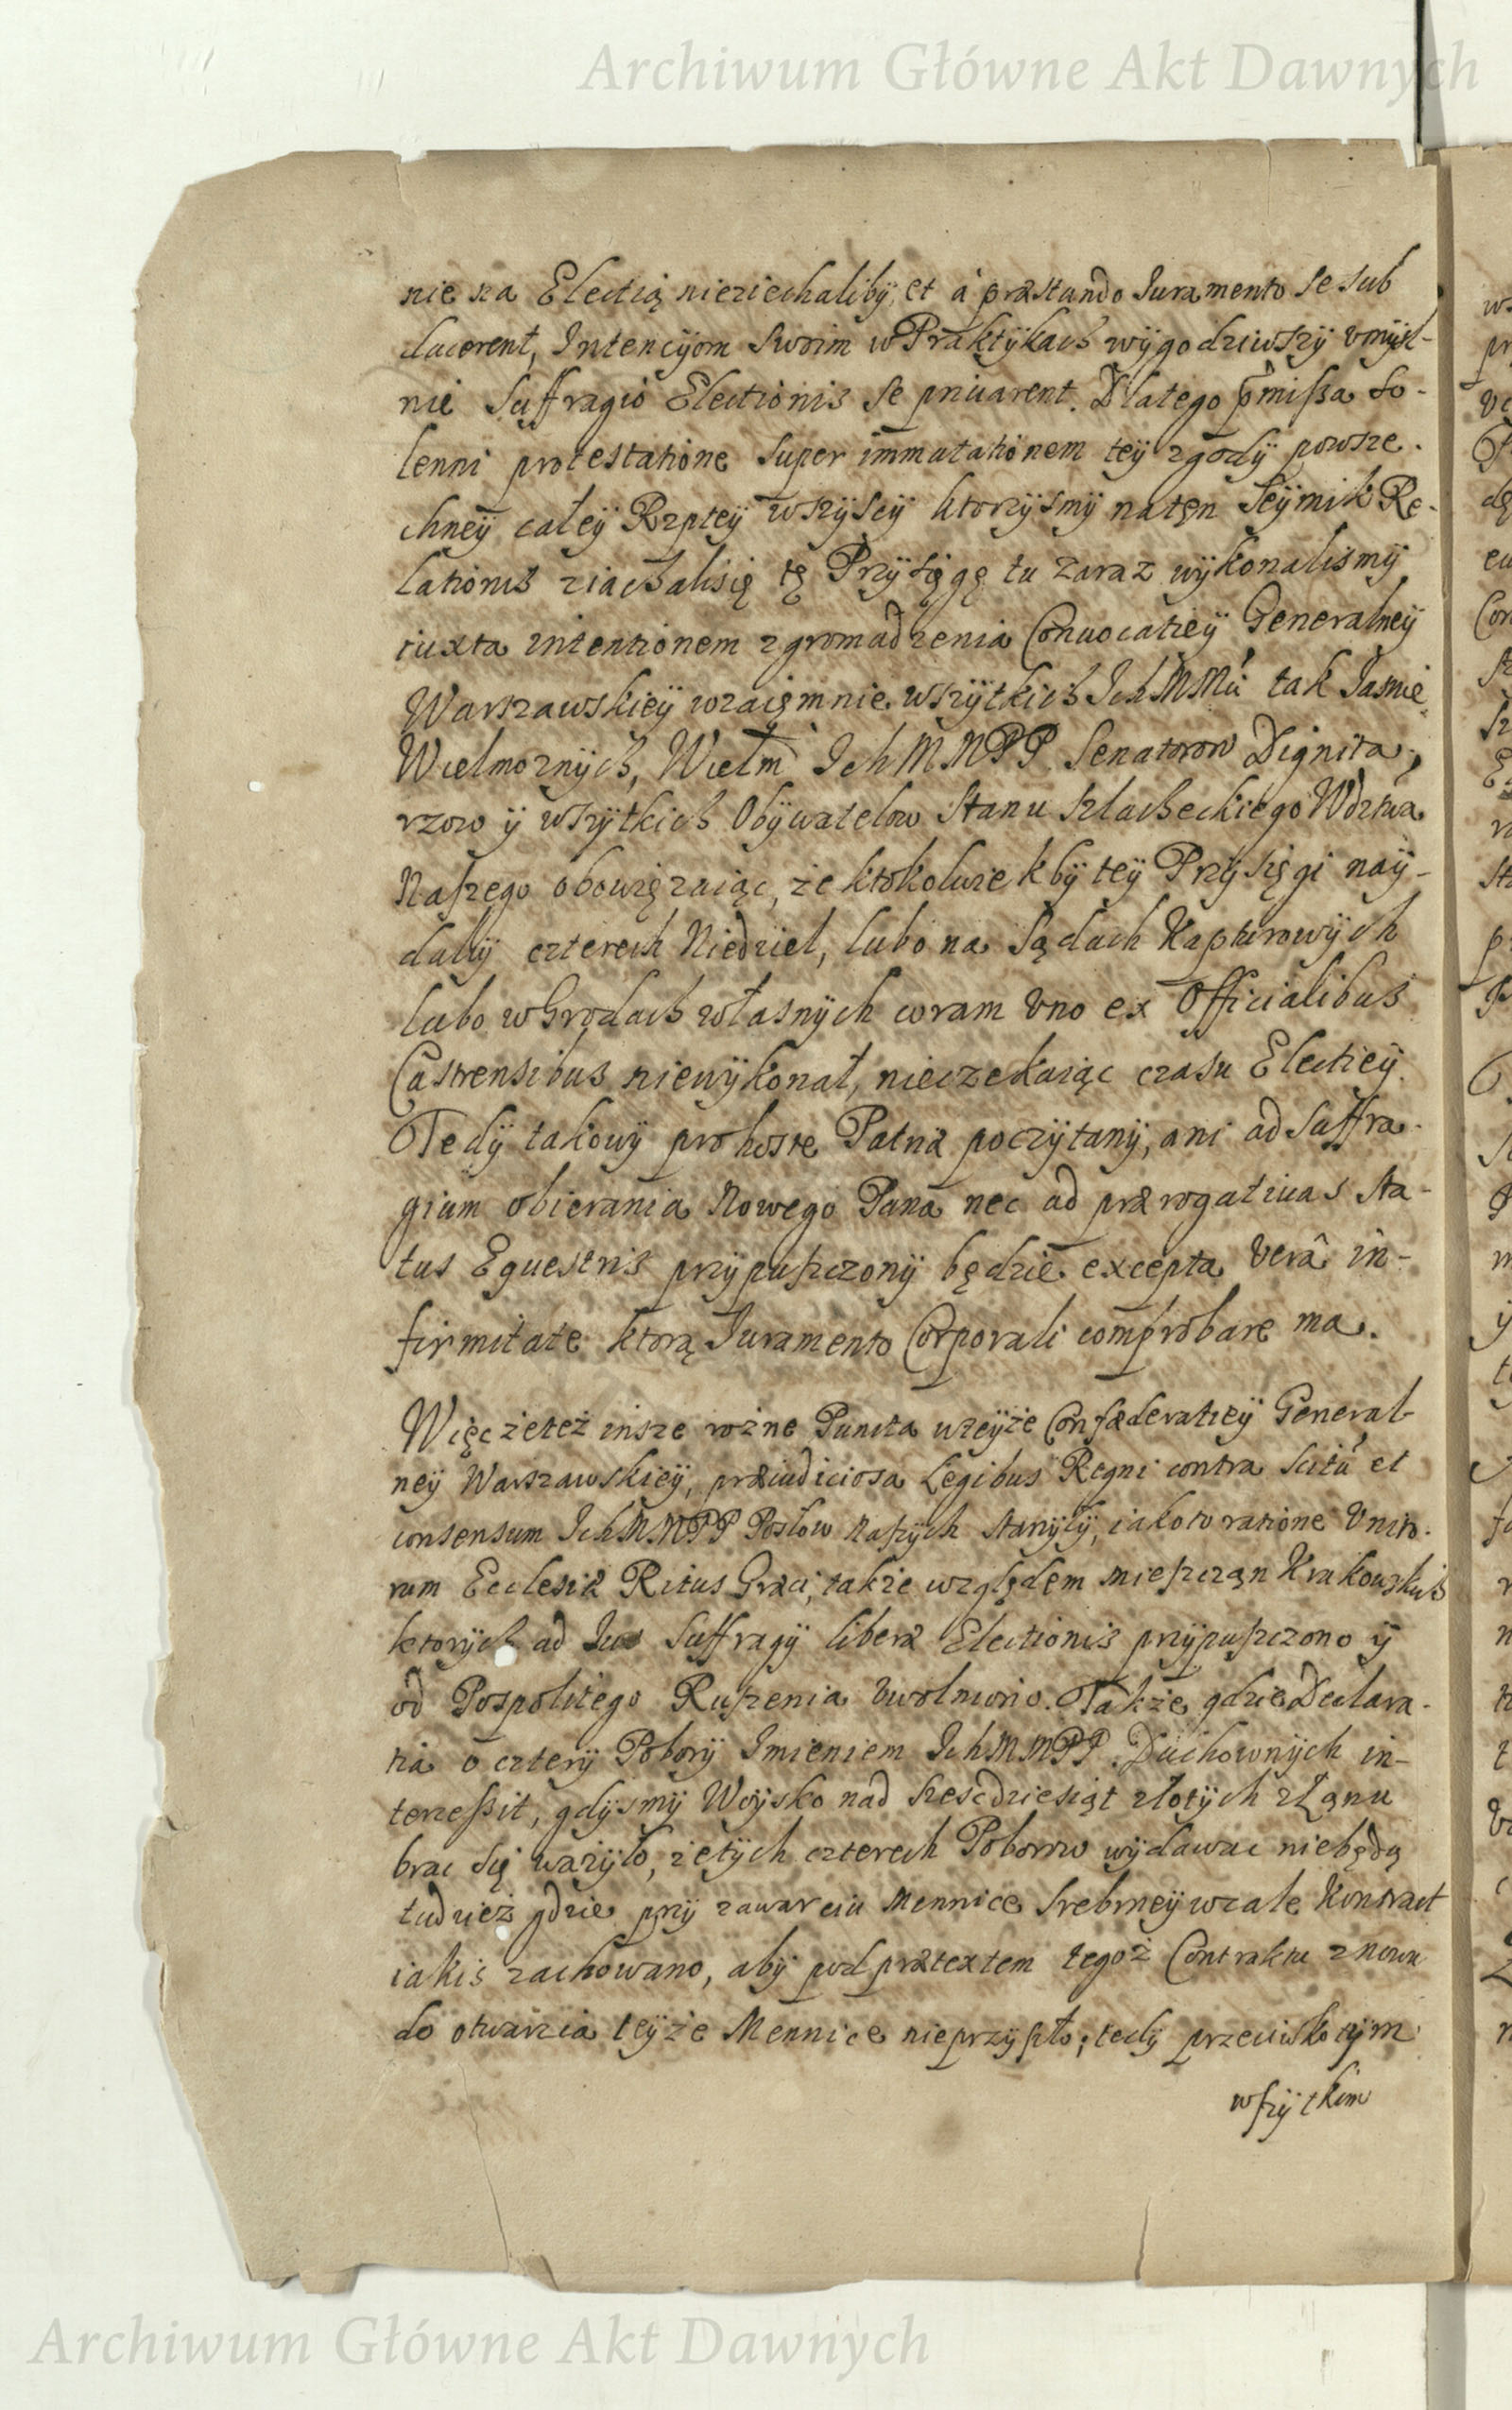 Archiwum Główne Akt Dawnych
nie na Electią nieziechaliby, et á præstando Juramento se sub
ducerent, Intencyom swoim w Praktykach wygodziwszy vmysl-
nie suffragio Electionis se priuarent. Dlatego p̃missa so-
lenni protestatione super immutationem tey zgody powsze-
chney całey Rzptey wszyscy ktorzysmy naten Seymik Re-
lationis ziachalisię tę Przysięgę tu zaraz wykonalismy
iuxta intentionem zgromadzenia Conuocatiey Generalney
Warszawskiey wzaięmnie wszytkich Ich MMć tak Jasnie
Wielmoznych, Wielm Ich MMPP Senatorow Dignita-
rzow y wszytkich Obywatelow Stanu szlacheckiego Wdztwa
Naszego obowięzuiąc, że ktokolwiek by tey Przysięgi nay-
daliy czterech Niedziel, lubo na Sądach Kapturowych
lubo w Grodach własnych coram Vno ex Officialibus
Castrensibus niewykonał, nieczekaiąc czasu Electiey.
Tedy takowy pro hoste Patriæ poczytany, ani ad suffra-
gium obierania Nowego Pana nec ad prærogatiuas sta-
tus Equestris przypuszczony będzie excepta Verâ in-
firmitate ktorą Juramento Corporali comprobare ma.
Więc żeteż insze rożne Puncta wteyże Confæderatiey General-
ney Warszawskiey, præiudiciosa Legibus Regni contra scitũ et
consensum Ich MMPP Posłow Naszych stanęły, iako to ratione Vnito-
rum Ecclesiæ Ritus Græci, także względem mieszczan Krakowskich
ktorych ad Jus suffragy liberæ Electionis przypuszczono y
od Pospolitego Ruszenia Vwolniono. Także gdzie Declara-
tia o cztery Pobory Imieniem Ich MMPP Duchownych in-
terceßit, gdysmy Woysko nad szescdziesiąt złotych z Łanu
brac się ważyło, ze tych czterech Poborow wydawac niebędą
tudzież gdzie przy zawarciu Mennice srebrney wcale Kontract
iakis zachowano, aby pod prætextem tegoż Contraktu znowu
do otwarcia teyże Mennice nieprzyszło; tedy przeciwko tym
wszytkim
Archiwum Główne Akt Dawnych